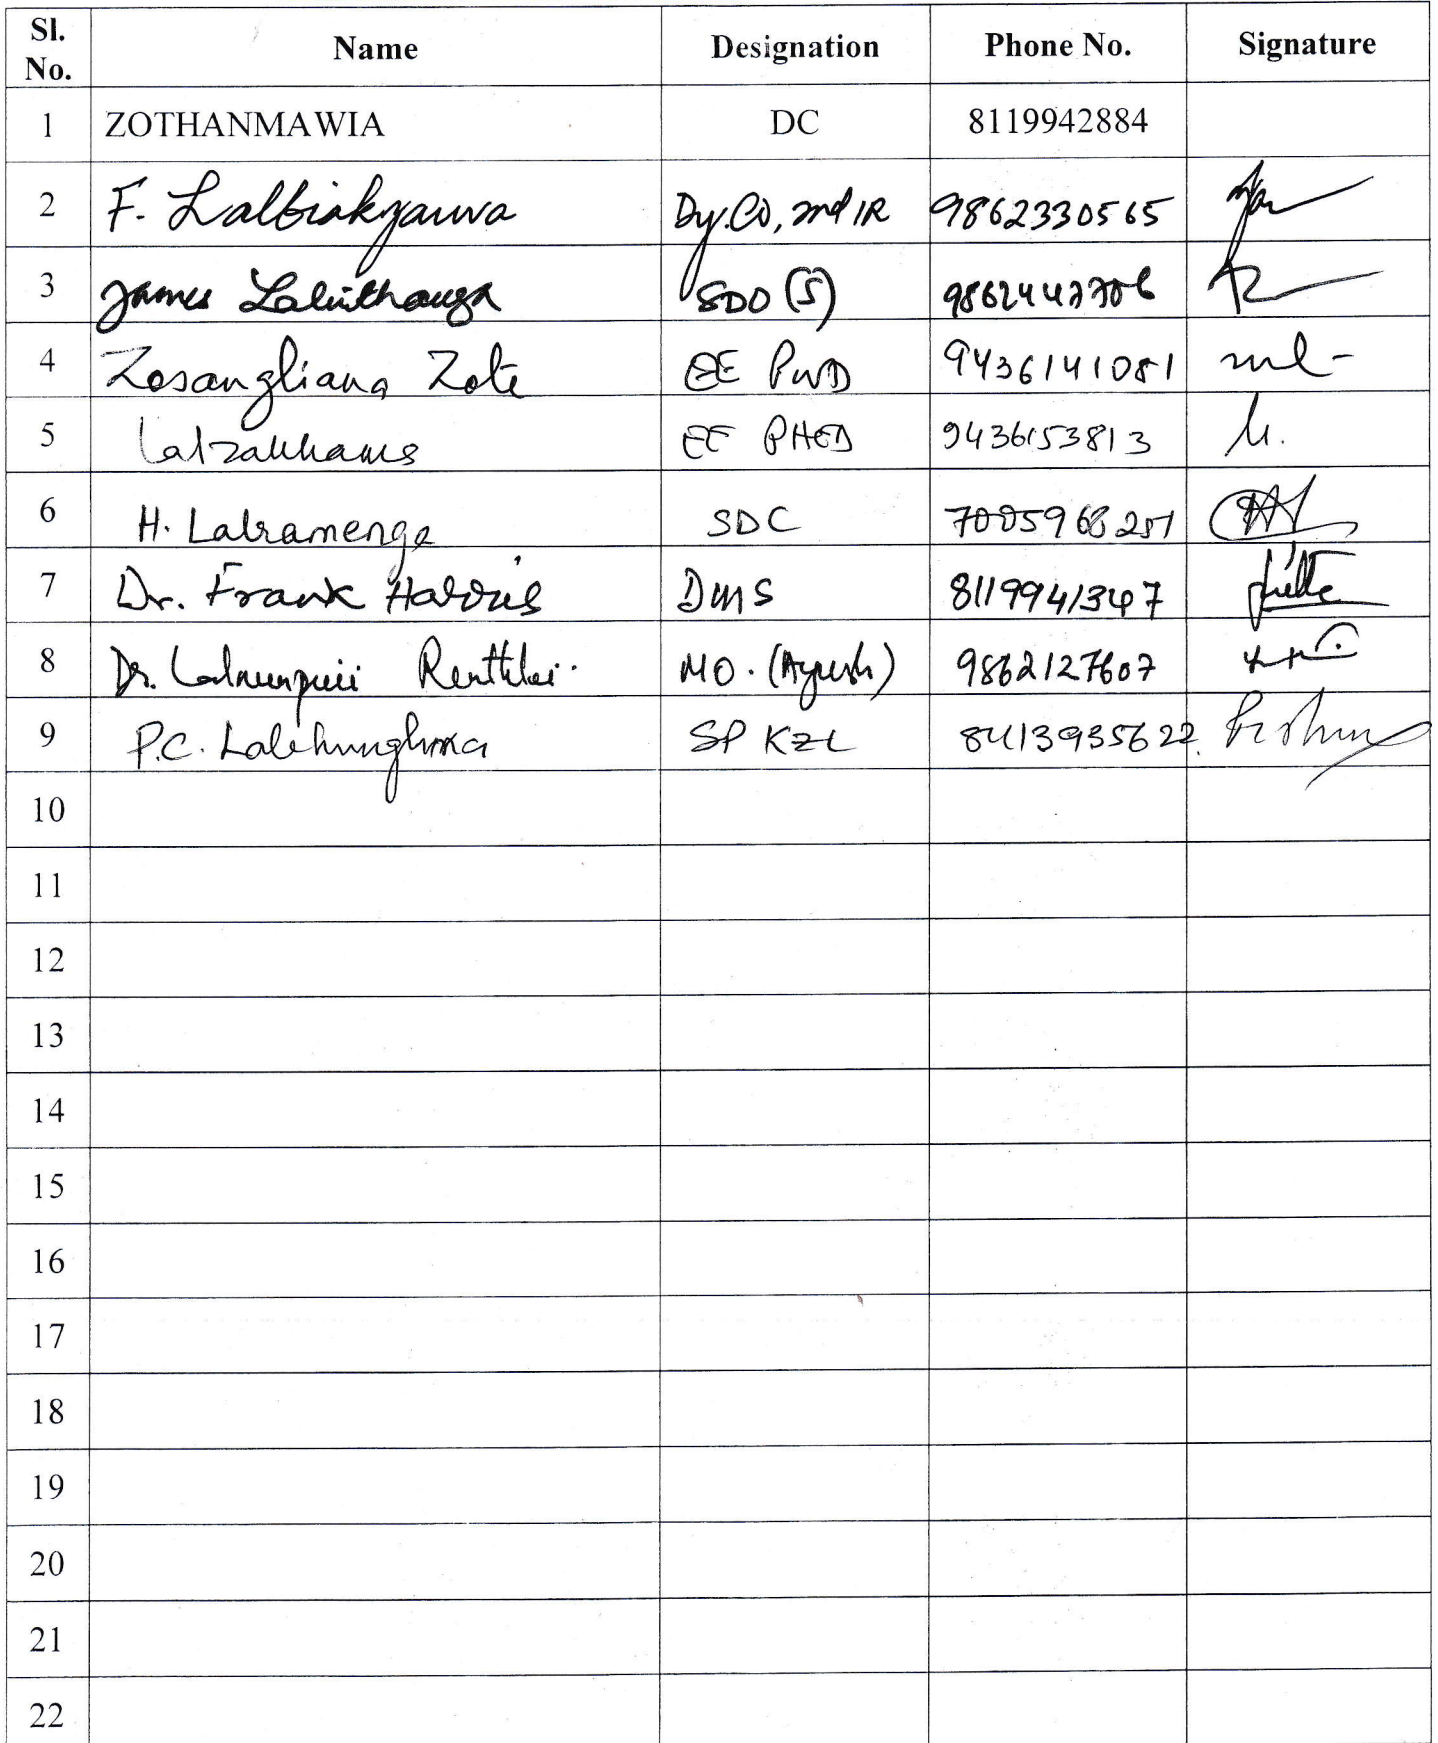 Sl. No. Name Designation Phone No. Signature
1 ZOTHANMAWIA DC 8119942884
2 F. Lalbiakzauva Dy.CO, 2nd IR 9862330565
3 James Lalrinthanga SDO (S)
4 Zosangliana Zote EE PWD 9436141081
5 EE PHED 9436153813
6 H. Lalramenga SDC
7 Dr. Frank DMS 8119941347
8 Dr. Lalnunpuii Renthlei. MO. (Ayush) 9862127607
9 P.C. SP KZL 8413935622
10
11
12
13
14
15
16
17
18
19
20
21
22